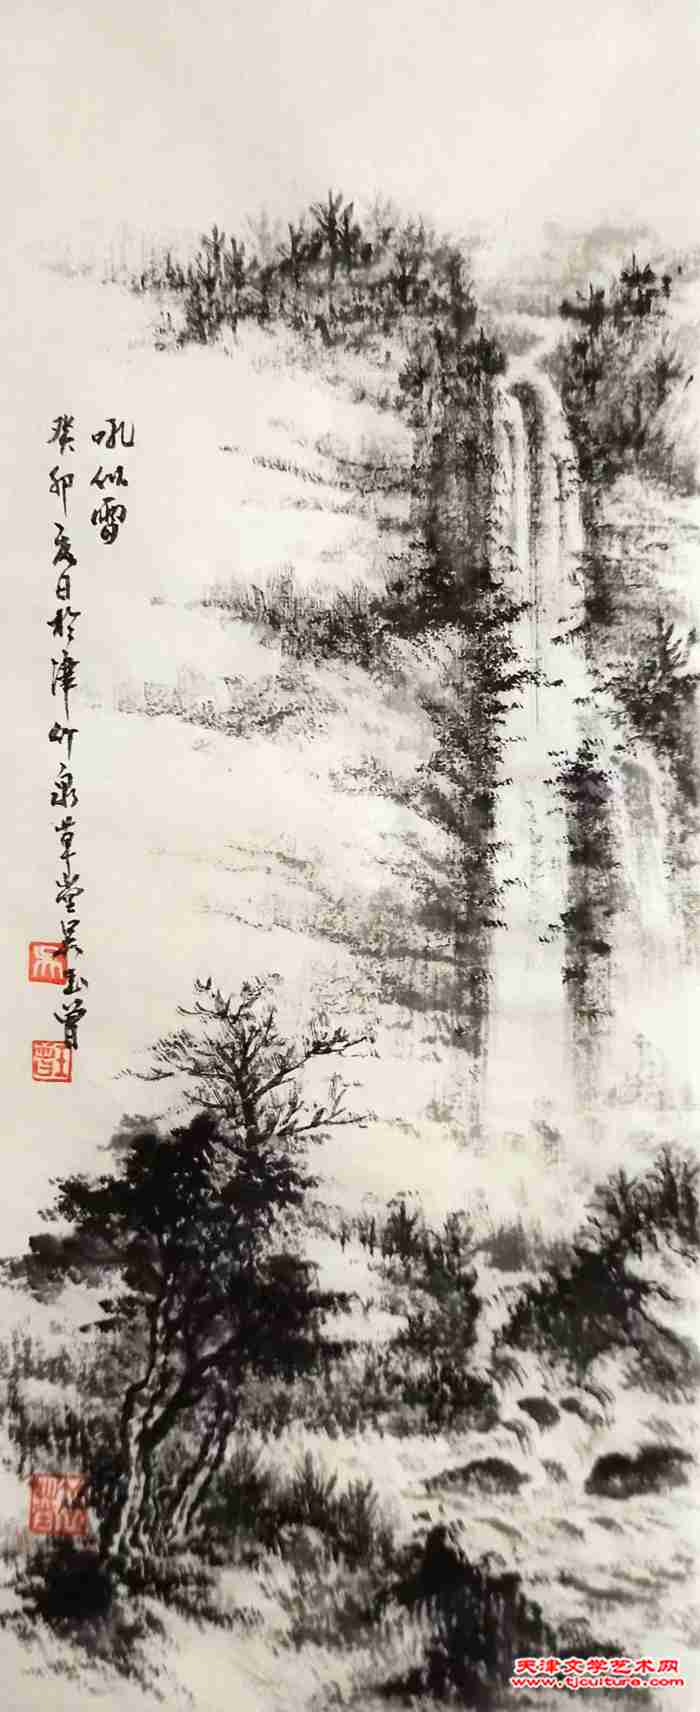 吼似雷
癸卯夏日於津竹泉草堂吴玉曾
天津文学艺术网
www.tjculture.com